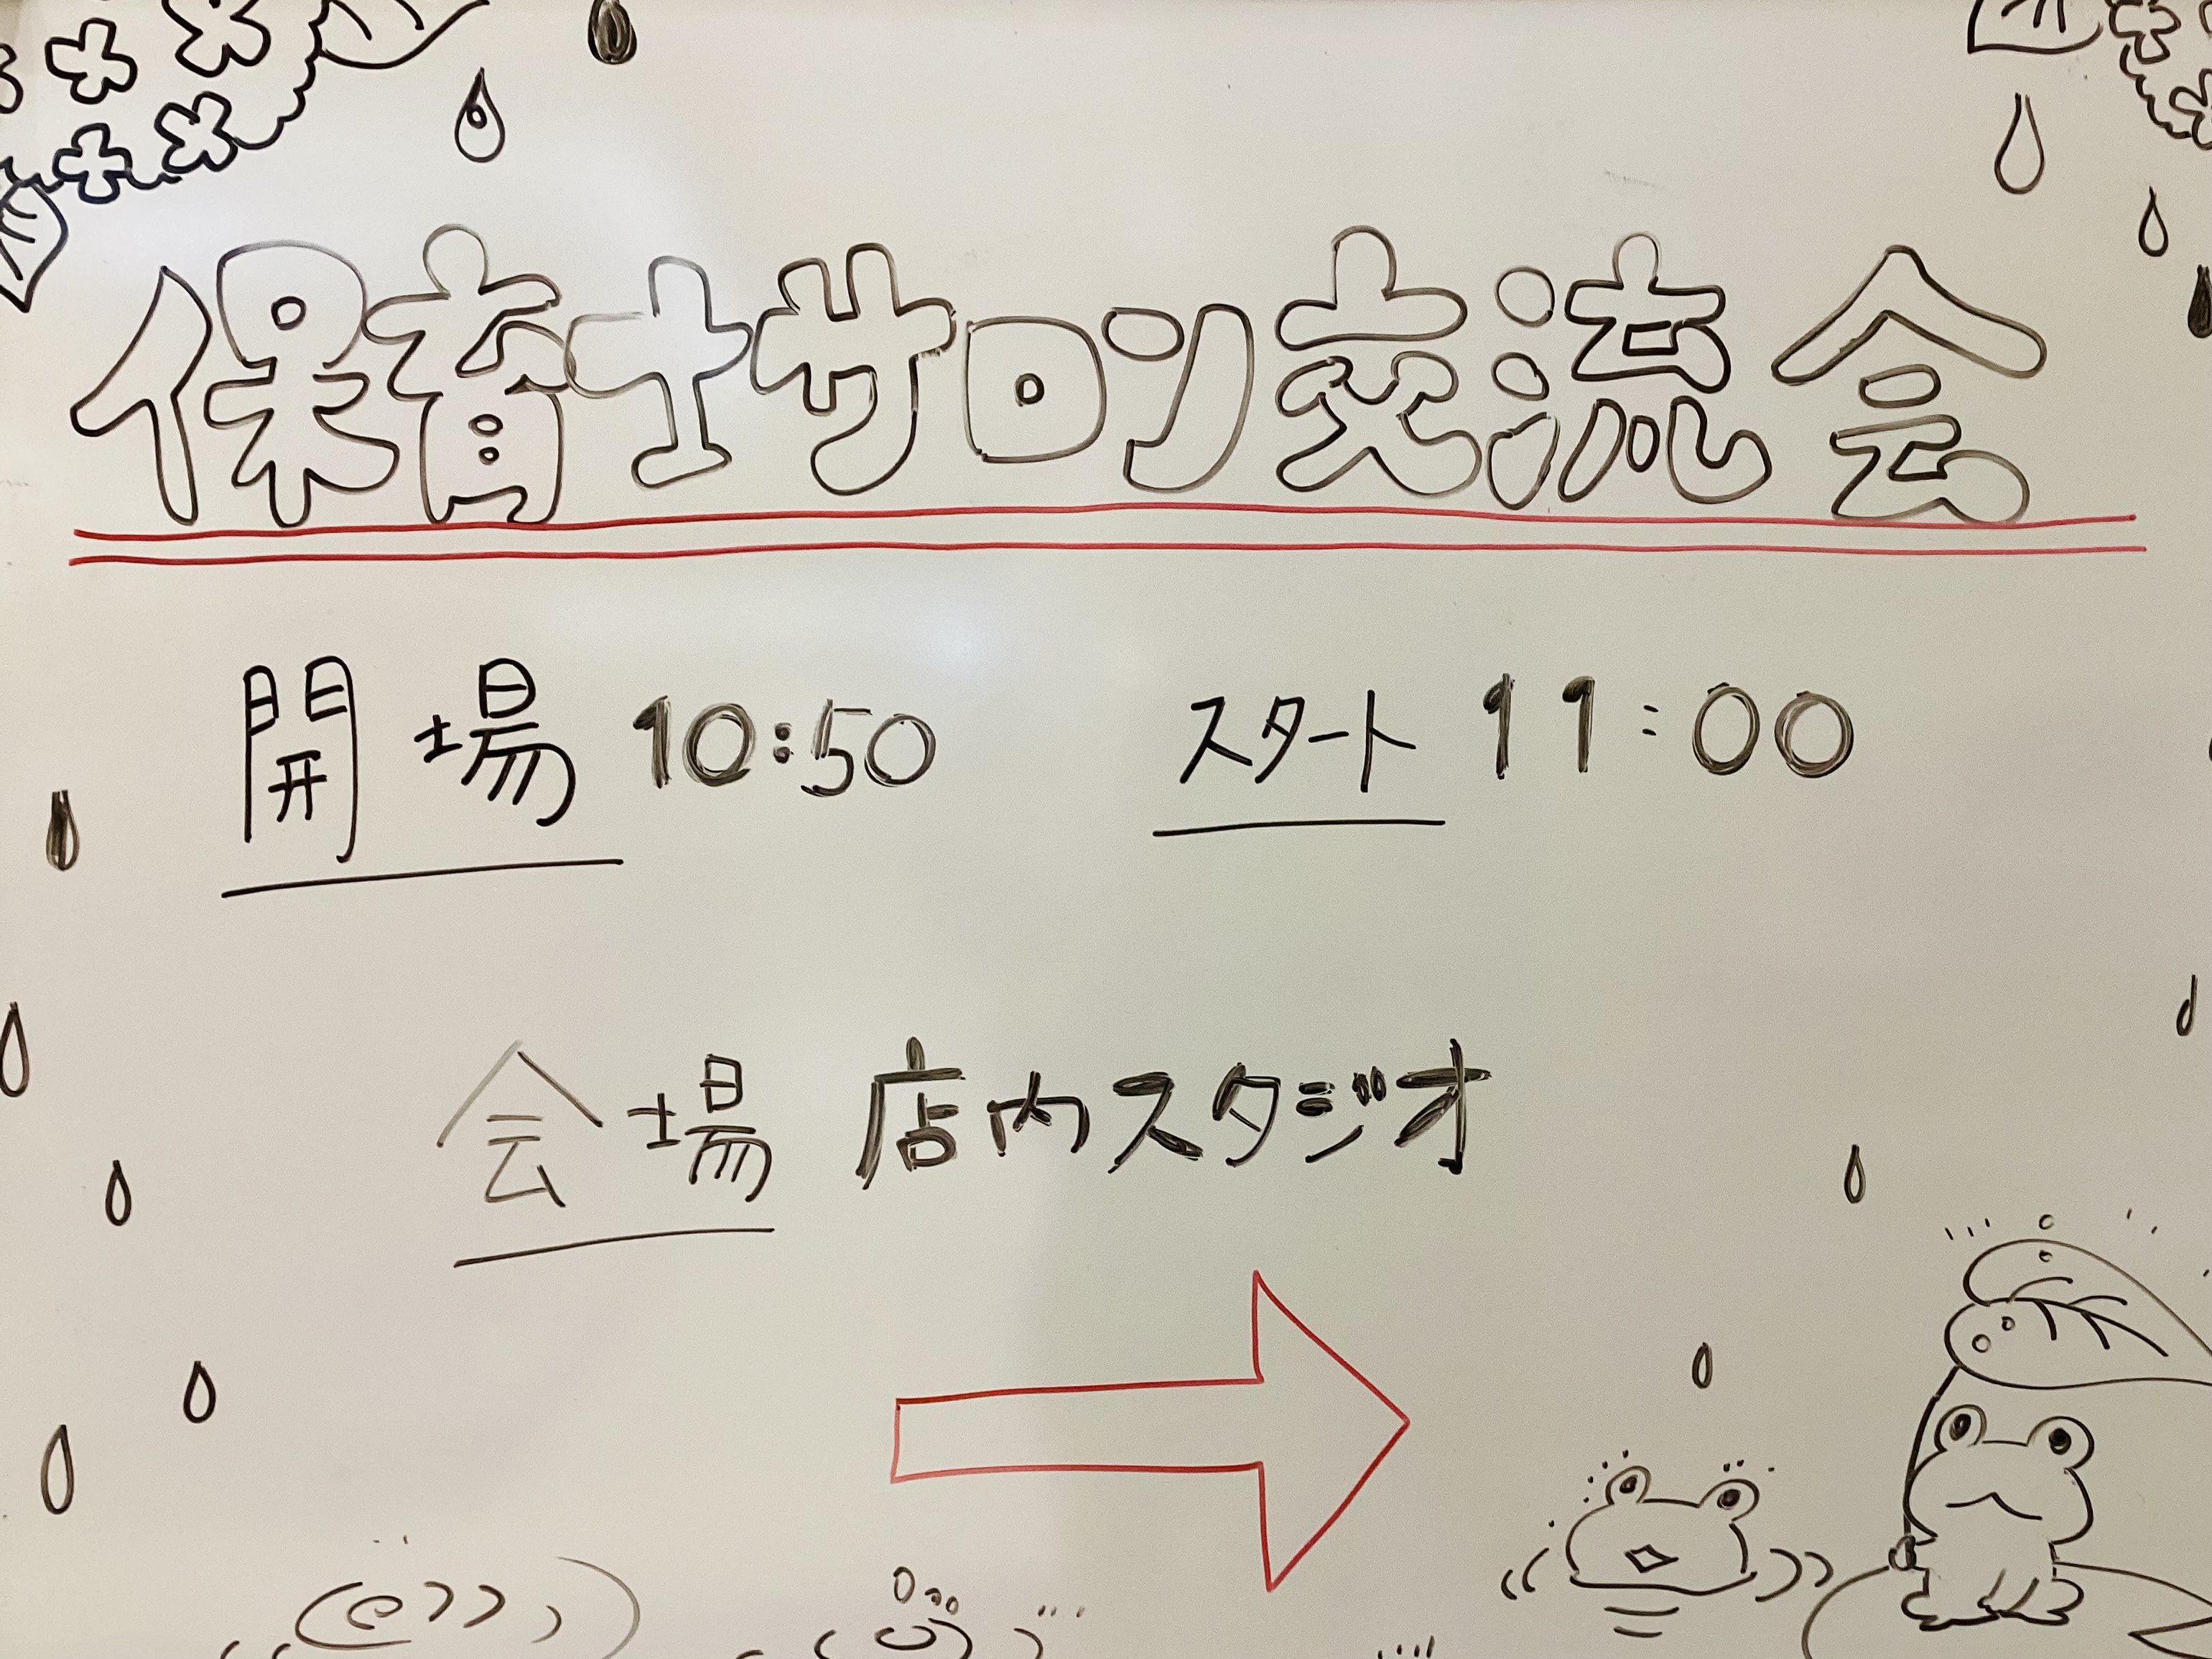 保育士サロン交流会
開場 10:50 スタート 11:00
会場 店内スタジオ